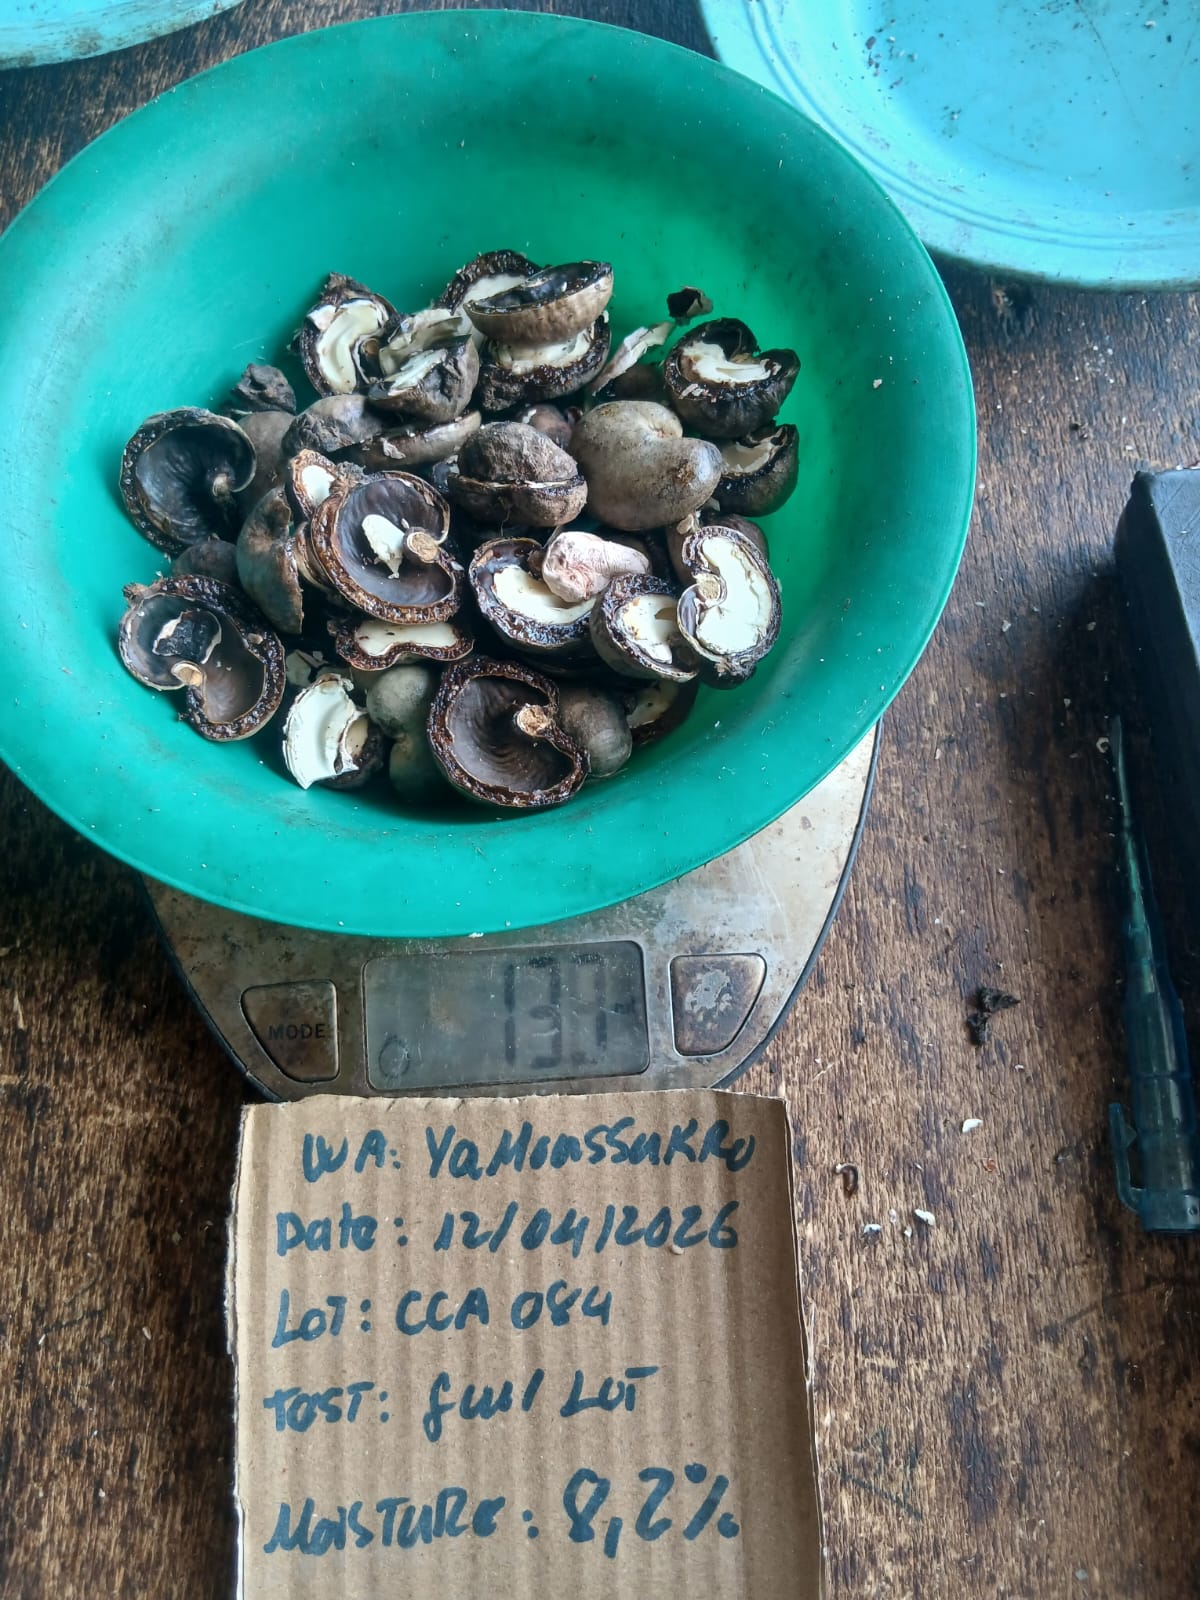 137
MODE
WA: YaMoussuKRo
Date: 12/04/2026
LOT: CCA 084
TEST: full LOT
MOISTURE: 8,2%